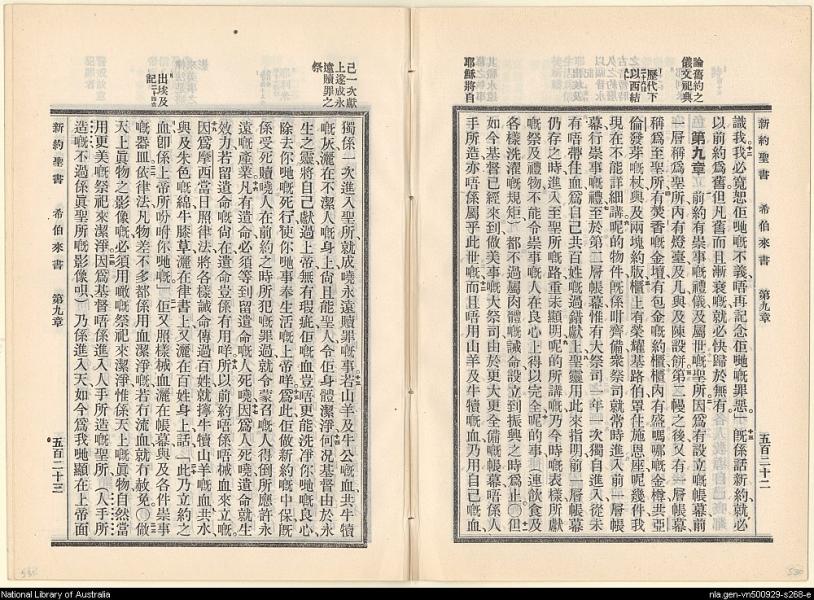 新約聖書 希伯來書 第九章 五百二十二
論舊約之
儀文祀典
識我我必寬恕佢哋嘅不義唔再記念佢哋嘅罪惡」既係話新約就必
以前約爲舊但凡舊而且漸衰嘅就必快歸於無有
第九章 前約有崇事嘅禮儀及屬世嘅聖所因爲有設立嘅帳幕前
一層稱爲聖所內有燈臺及几與及陳設餅第二幔之後又有一層帳幕
稱爲至聖所有焚香嘅金壇有包金嘅約櫃櫃內有盛嗎哪嘅金樽共亞
倫發芽嘅杖與及兩塊約版櫃上有榮耀基路伯罩住施恩座呢幾件我
現在不能詳細講呢的物件既係咁齊備衆祭司就常時進入前一層帳
幕行崇事嘅禮至於第二層帳幕惟有大祭司一年一次獨自進入從未
有唔帶住血爲自己共百姓嘅過錯獻上聖靈用此來指明前一層帳幕
仍存之時進入至聖所嘅路重未顯明呢的所講乃今時嘅表樣所獻
嘅祭及禮物不能令崇事嘅人在良心上得以完全呢的事(連飲食及
各樣洗濯嘅規矩)都不過屬肉體嘅誡命設立到振興之時爲止〇但
如今基督已經來到做美事嘅大祭司由於更大更全備嘅帳幕唔係人
手所造亦唔係屬乎此世嘅而且唔用山羊及牛犢嘅血乃用自己嘅血
耶穌將自
己一次獻
上遂成永
遠贖罪之
祭
獨係一次進入聖所就成曉永遠贖罪嘅事若山羊及牛公嘅血共牛犢
嘅灰灑在不潔人嘅身上尙且能聖人令佢身體潔淨何況基督由於永
生之靈將自己獻過上帝無有瑕疵佢嘅血豈唔更能洗淨你哋嘅良心
除去你哋嘅死行使你哋事奉生活嘅上帝咩爲此佢做新約嘅中保既
係受死贖曉人在前約之時所犯嘅罪過就令蒙召嘅人得倒所應許永
遠嘅產業凡有遺命嘅必須等到留遺命嘅人死曉因爲人死曉遺命就生
效力若留遺命嘅尙在遺命豈係有用咩所以前約唔係唔用血來立嘅
因爲摩西當日照律法將各樣誡命傳過百姓就攞牛犢山羊嘅血共水
與及朱色嘅綿牛膝草灑在律書上又灑在百姓身上話「此乃立約之
血即係上帝所吩咐你哋嘅」佢又照樣械血灑在帳幕與及各件崇事
嘅器皿依律法凡物差不多都係用血潔淨嘅若冇流血就冇赦免〇做
天上眞物之影像嘅必須用噉嘅祭祀來潔淨惟係天上嘅眞物自然當
用更美嘅祭祀來潔淨因爲基督唔係進入人手所造嘅聖所(人手所
造嘅不過係眞聖所嘅影像啫)乃係進入天如今爲我哋顯在上帝面
出埃及
新約聖書 希伯來書 第九章 五百二十三
National Library of Australia
nla.gen-vn500929-s268-e